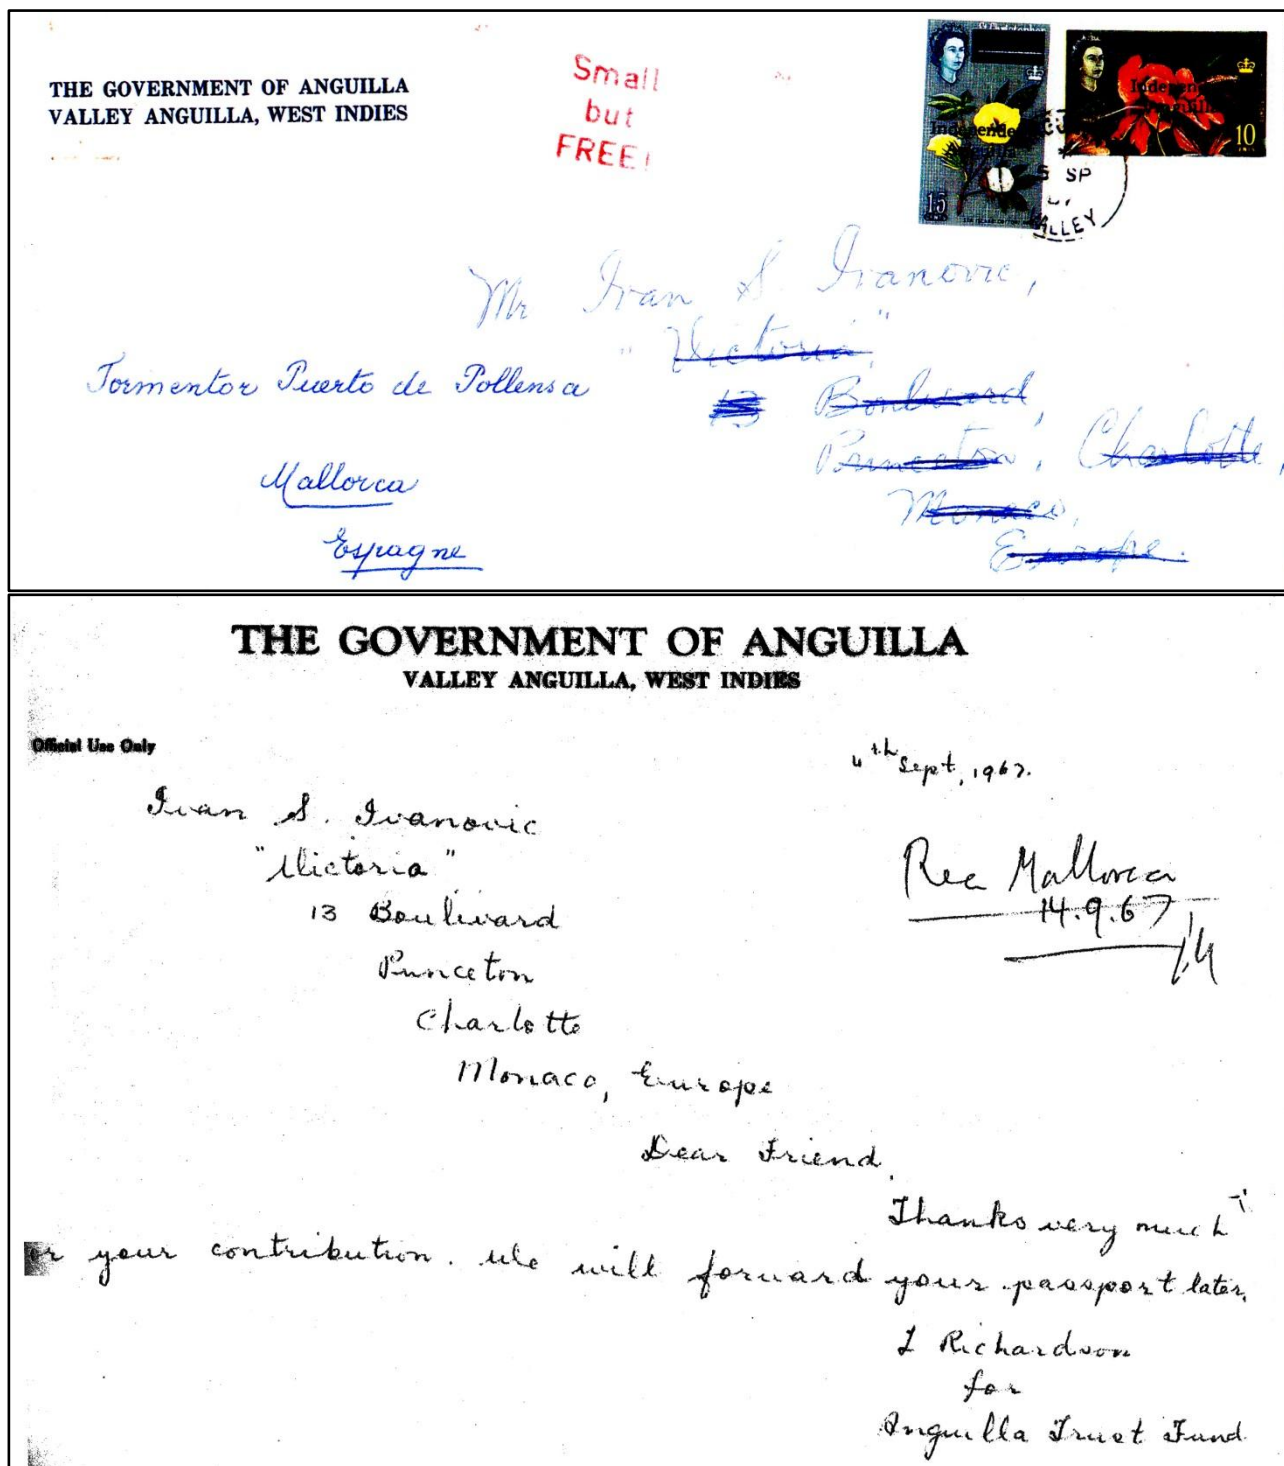 THE GOVERNMENT OF ANGUILLA
VALLEY ANGUILLA, WEST INDIES
Small
but
FREE!
Independent
Anguilla
15
Independent
Anguilla
10
SP
VALLEY
Mr Ivan S. Ivanovic,
"Victoria",
13 Boulevard,
Princeton, Charlotte,
Monaco,
Europe.
Formentor Puerto de Pollensa
Mallorca
Espagne
THE GOVERNMENT OF ANGUILLA
VALLEY ANGUILLA, WEST INDIES
Official Use Only
4th Sept, 1967.
Ivan S. Ivanovic
"Victoria"
13 Boulivard
Punceton
Charlotte
Monaco, Europe
Rec Mallorca
14.9.67
Dear Friend,
Thanks very much
or your contribution. We will forward your passport later.
L Richardson
for
Anguilla Trust Fund